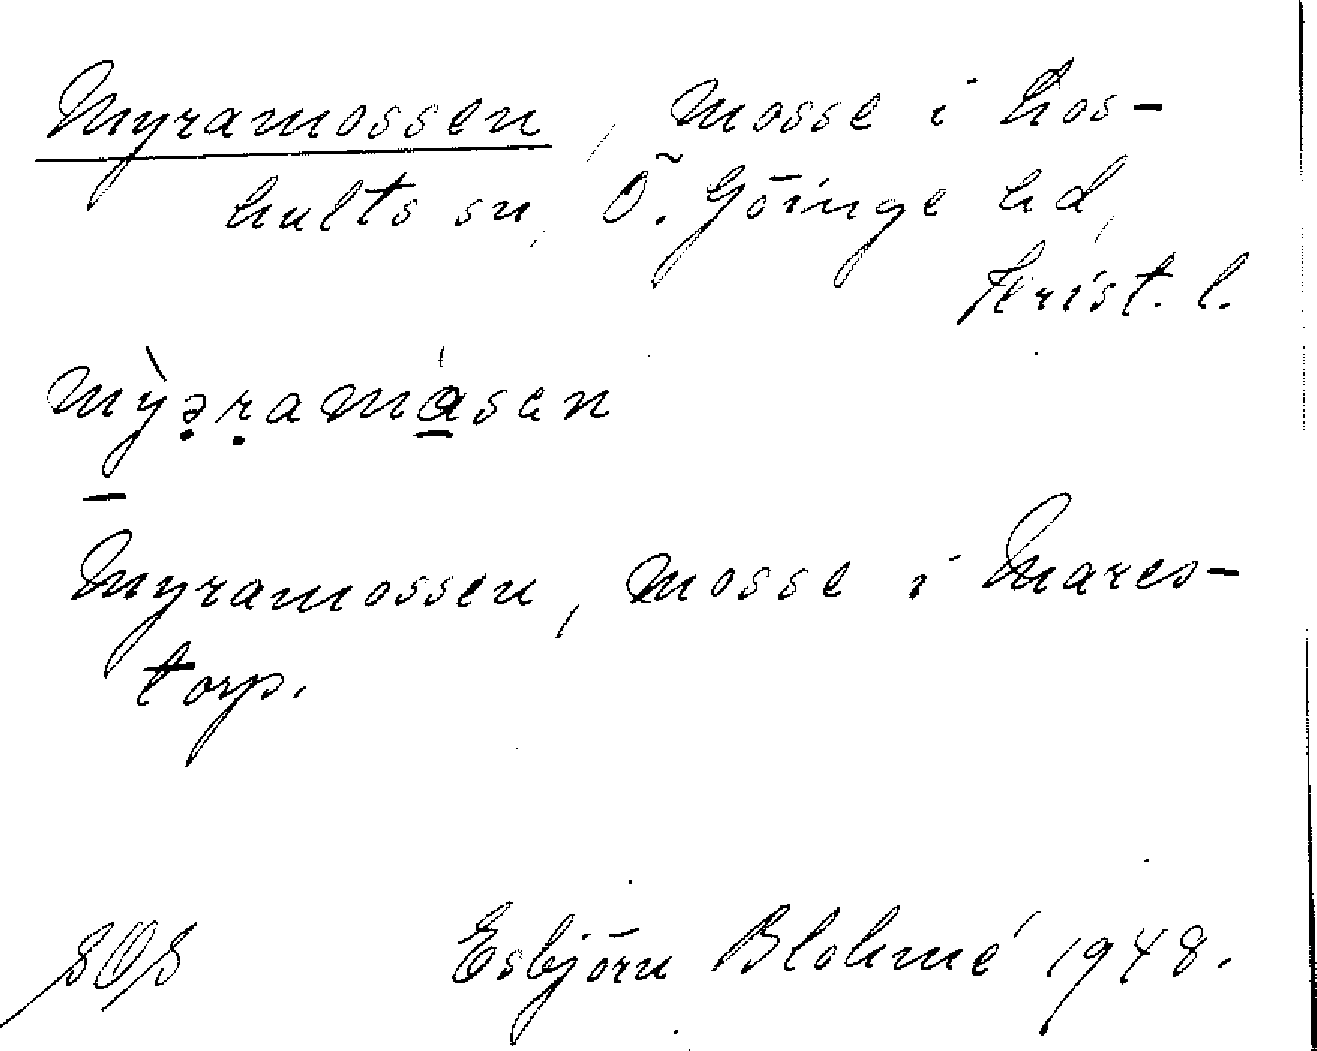 Myramossen, mosse i Los-
hults sn, Ö. Göinge hd,
Krist. l.
mỳə̣ṛamá̱sen
Myramossen, mosse i Mares-
torp.
Esbjörn Blohmé 1948.